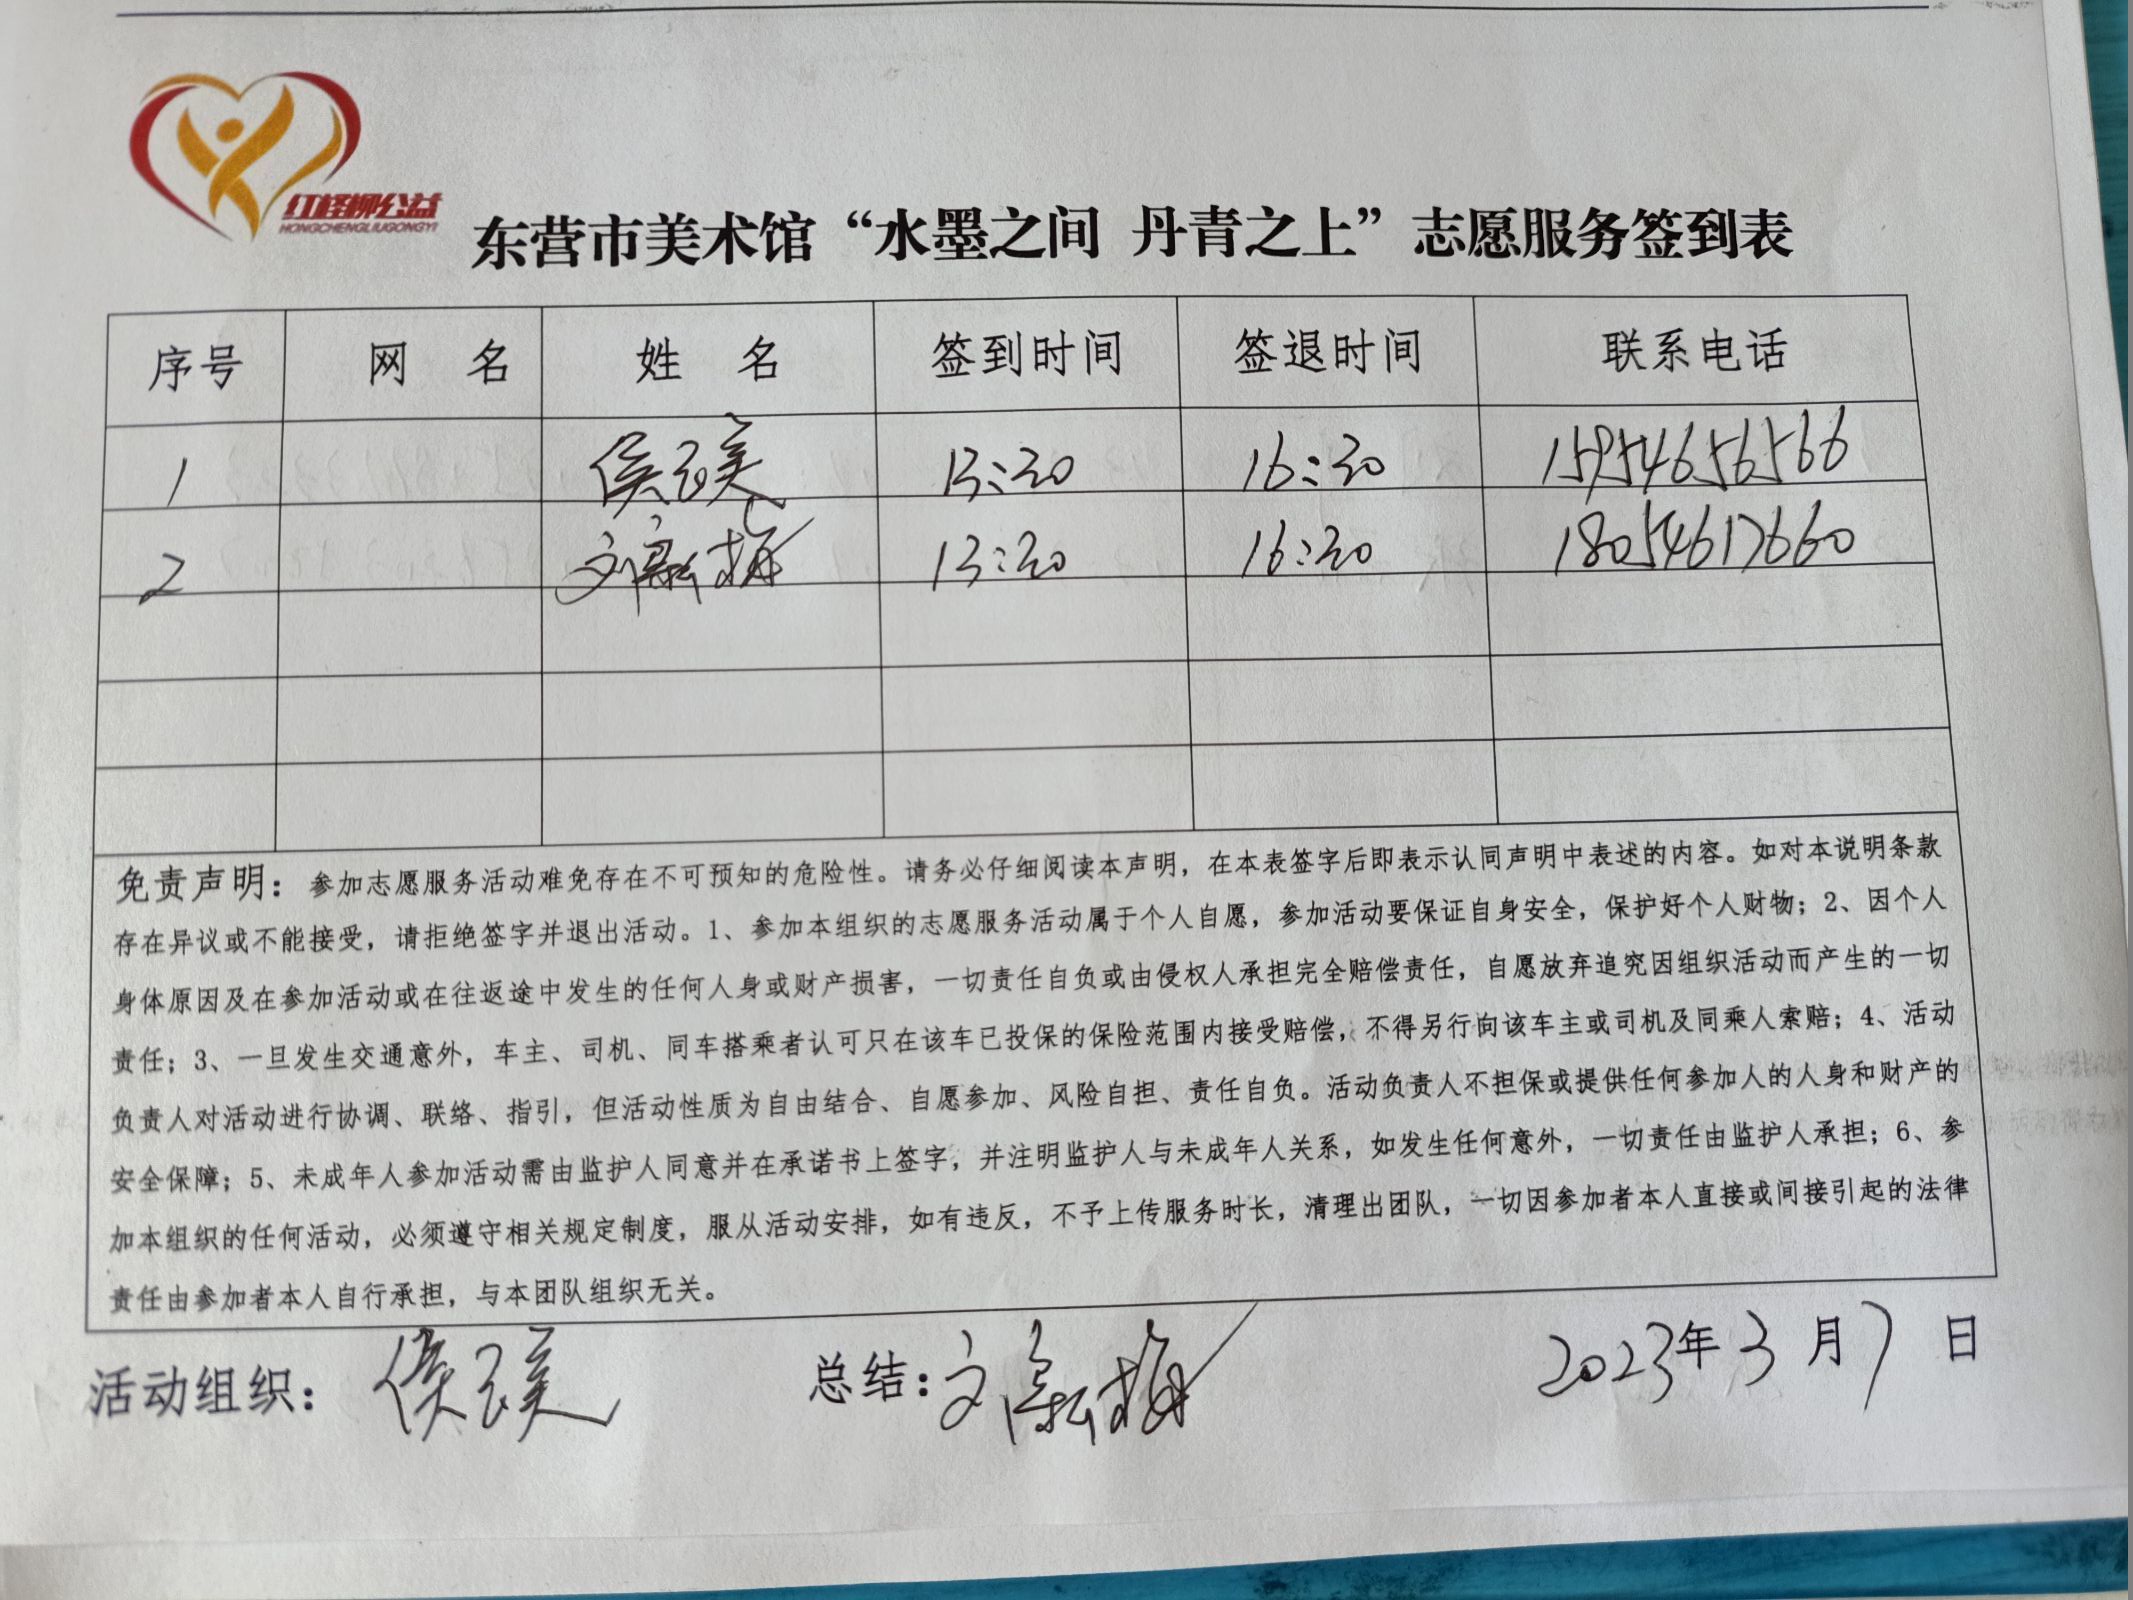 红柽柳公益
HONGCHENGLIUGONGYI
东营市美术馆“水墨之间 丹青之上”志愿服务签到表
序号 网 名 姓 名 签到时间 签退时间 联系电话
1 侯 美 13:20 16:20 15954656566
2 刘 梅 13:20 16:20 18054617660
免责声明：参加志愿服务活动难免存在不可预知的危险性。请务必仔细阅读本声明，在本表签字后即表示认同声明中表述的内容。如对本说明条款
存在异议或不能接受，请拒绝签字并退出活动。1、参加本组织的志愿服务活动属于个人自愿，参加活动要保证自身安全，保护好个人财物；2、因个人
身体原因及在参加活动或在往返途中发生的任何人身或财产损害，一切责任自负或由侵权人承担完全赔偿责任，自愿放弃追究因组织活动而产生的一切
责任；3、一旦发生交通意外，车主、司机、同车搭乘者认可只在该车已投保的保险范围内接受赔偿，不得另行向该车主或司机及同乘人索赔；4、活动
负责人对活动进行协调、联络、指引，但活动性质为自由结合、自愿参加、风险自担、责任自负。活动负责人不担保或提供任何参加人的人身和财产的
安全保障；5、未成年人参加活动需由监护人同意并在承诺书上签字，并注明监护人与未成年人关系，如发生任何意外，一切责任由监护人承担；6、参
加本组织的任何活动，必须遵守相关规定制度，服从活动安排，如有违反，不予上传服务时长，清理出团队，一切因参加者本人直接或间接引起的法律
责任由参加者本人自行承担，与本团队组织无关。
活动组织：侯 美 总结：刘 梅 2023年3月7日